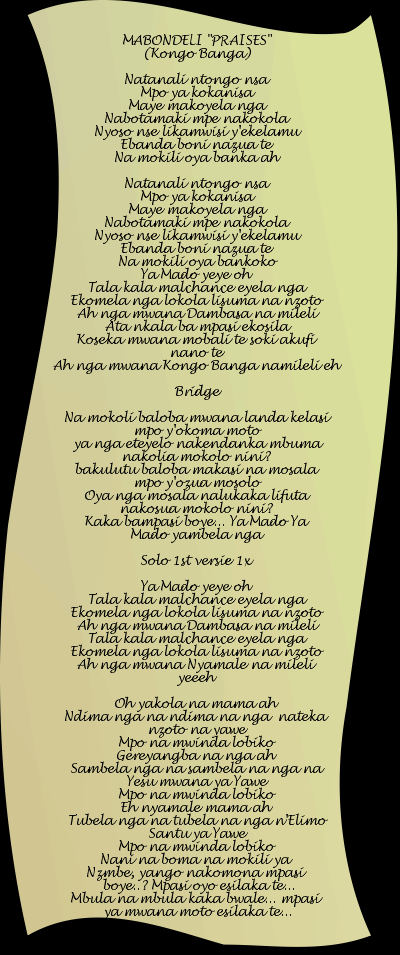 MABONDELI "PRAISES"
(Kongo Banga)
Natanali ntongo nsa
Mpo ya kokanisa
Maye makoyela nga
Nabotamaki mpe nakokola
Nyoso nse likamwisi y'ekelamu
Ebanda boni nazua te
Na mokili oya banka ah
Natanali ntongo nsa
Mpo ya kokanisa
Maye makoyela nga
Nabotamaki mpe nakokola
Nyoso nse likamwisi y'ekelamu
Ebanda boni nazua te
Na mokili oya bankoko
Ya Mado yeye oh
Tala kala malchance eyela nga
Ekomela nga lokola lisuma na nzoto
Ah nga mwana Dambasa na mileli
Ata nkala ba mpasi ekosila
Koseka mwana mobali te soki akufi
nano te
Ah nga mwana Kongo Banga namileli eh
Bridge
Na mokoli baloba mwana landa kelasi
mpo y'okoma moto
ya nga eteyelo nakendanka mbuma
nakolia mokolo nini?
bakulutu baloba makasi na mosala
mpo y'ozua mosolo
Oya nga mosala nalukaka lifuta
nakosua mokolo nini?
Kaka bampasi boye... Ya Mado Ya
Mado yambela nga
Solo 1st versie 1x
Ya Mado yeye oh
Tala kala malchance eyela nga
Ekomela nga lokola lisuma na nzoto
Ah nga mwana Dambasa na mileli
Tala kala malchance eyela nga
Ekomela nga lokola lisuma na nzoto
Ah nga mwana Nyamale na mileli
yeeeh
Oh yakola na mama ah
Ndima nga na ndima na nga nateka
nzoto na yawe
Mpo na mwinda lobiko
Gereyangba na nga ah
Sambela nga na sambela na nga na
Yesu mwana ya Yawe
Mpo na mwinda lobiko
Eh nyamale mama ah
Tubela nga na tubela na nga n'Elimo
Santu ya Yawe
Mpo na mwinda lobiko
Nani na boma na mokili ya
Nzmbe, yango nakomona mpasi
boye..? Mpasi oyo esilaka te...
Mbula na mbula kaka bwale... mpasi
ya mwana moto esilaka te...